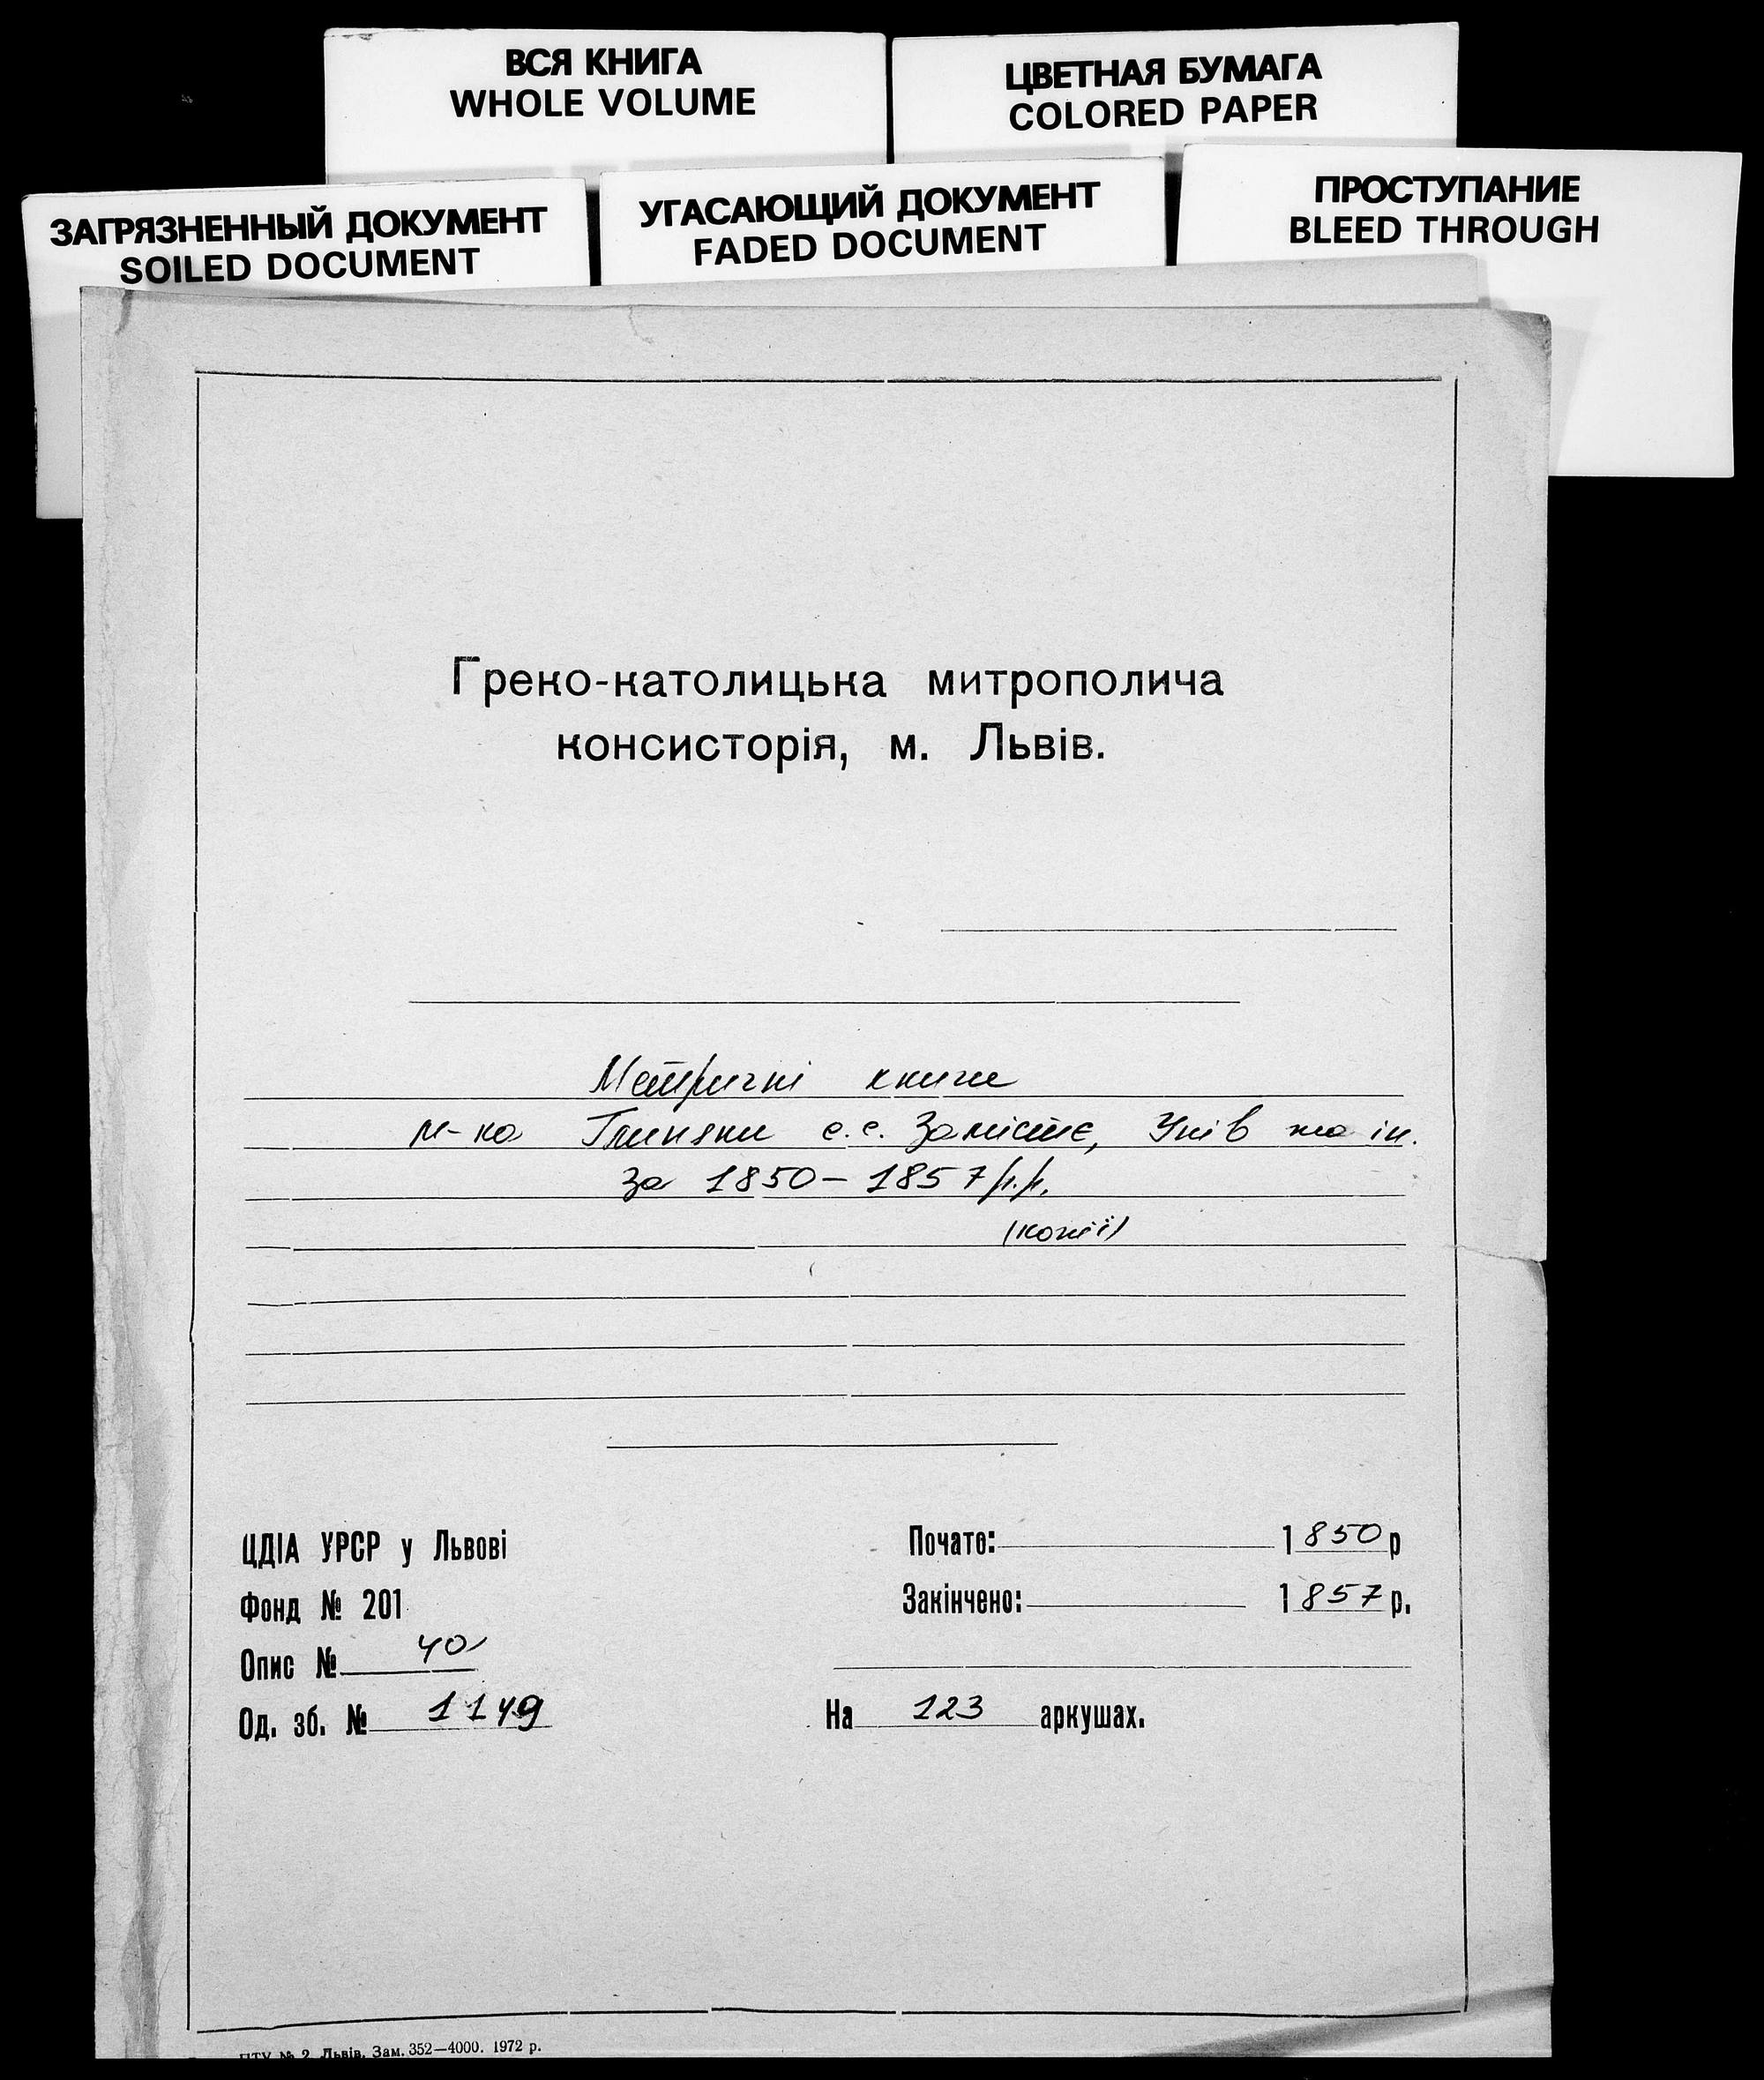 ВСЯ КНИГА
WHOLE VOLUME
ЦВЕТНАЯ БУМАГА
COLORED PAPER
ЗАГРЯЗНЕННЫЙ ДОКУМЕНТ
SOILED DOCUMENT
УГАСАЮЩИЙ ДОКУМЕНТ
FADED DOCUMENT
ПРОСТУПАНИЕ
BLEED THROUGH
Греко-католицька митрополича
консисторія, м. Львів.
Метричні книги
м-ко Глиняни с.с. Замістє, Унів та ін.
за 1850 – 1857 р.р.
(копії)
ЦДІА УРСР у Львові
Фонд № 201
Опис № 40
Од. зб. № 1149
Почато: 1850 р
Закінчено: 1857 р.
На 123 аркушах.
ПТУ № 2 Львів. Зам. 352—4000. 1972 р.